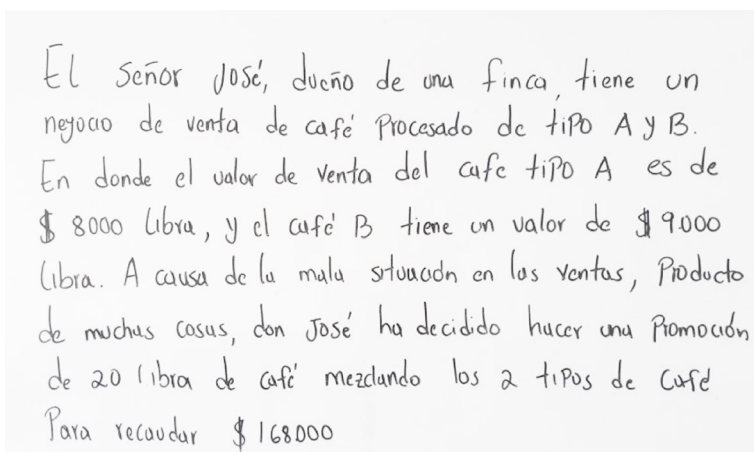 El señor José, dueño de una finca, tiene un
negocio de venta de café Procesado de tipo A y B.
En donde el valor de venta del cafe tipo A es de
$ 8000 Libra, y el café B tiene un valor de $ 9.000
Libra. A causa de la mala situación en las ventas, Producto
de muchas cosas, don José ha decidido hacer una Promoción
de 20 libra de café mezclando los 2 tipos de Café
Para recaudar $ 168000